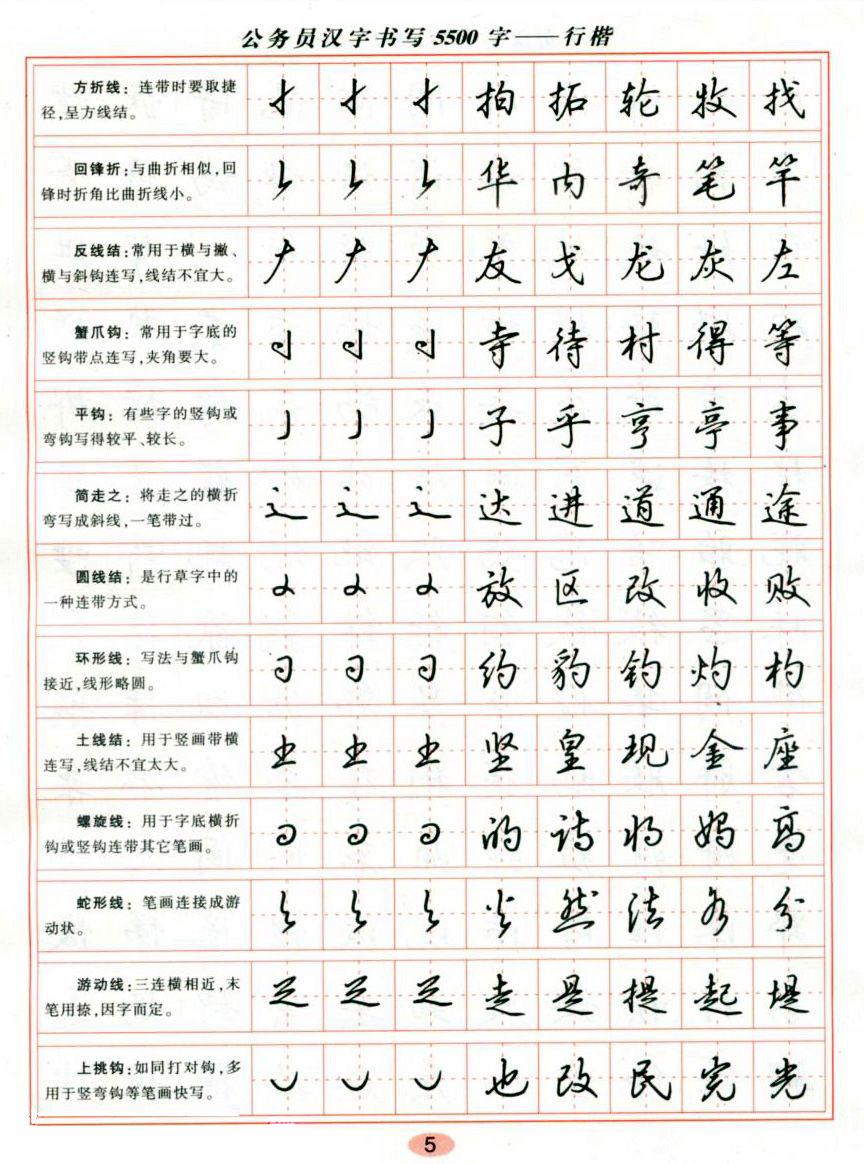 公务员汉字书写5500字——行楷
方折线：连带时要取捷
径,呈方线结。
拍 拓 轮 牧 找
回锋折:与曲折相似,回
锋时折角比曲折线小。
华 内 奇 笔 竿
反线结:常用于横与撇、
横与斜钩连写,线结不宜大。
友 戈 龙 灰 左
蟹爪钩：常用于字底的
竖钩带点连写,夹角要大。
寺 待 村 得 等
平钩：有些字的竖钩或
弯钩写得较平、较长。
子 乎 亨 亭 事
简走之：将走之的横折
弯写成斜线,一笔带过。
达 进 道 通 途
圆线结：是行草字中的
一种连带方式。
放 区 改 收 败
环形线：写法与蟹爪钩
接近,线形略圆。
约 豹 钓 灼 杓
土线结：用于竖画带横
连写,线结不宜太大。
坚 皇 现 金 座
螺旋线：用于字底横折
钩或竖钩连带其它笔画。
的 诗 将 妈 高
蛇形线：笔画连接成游
动状。
然 法 分
游动线:三连横相近,末
笔用捺,因字而定。
走 是 提 起 堤
上挑钩:如同打对钩,多
用于竖弯钩等笔画快写。
也 改 民 完 光
5